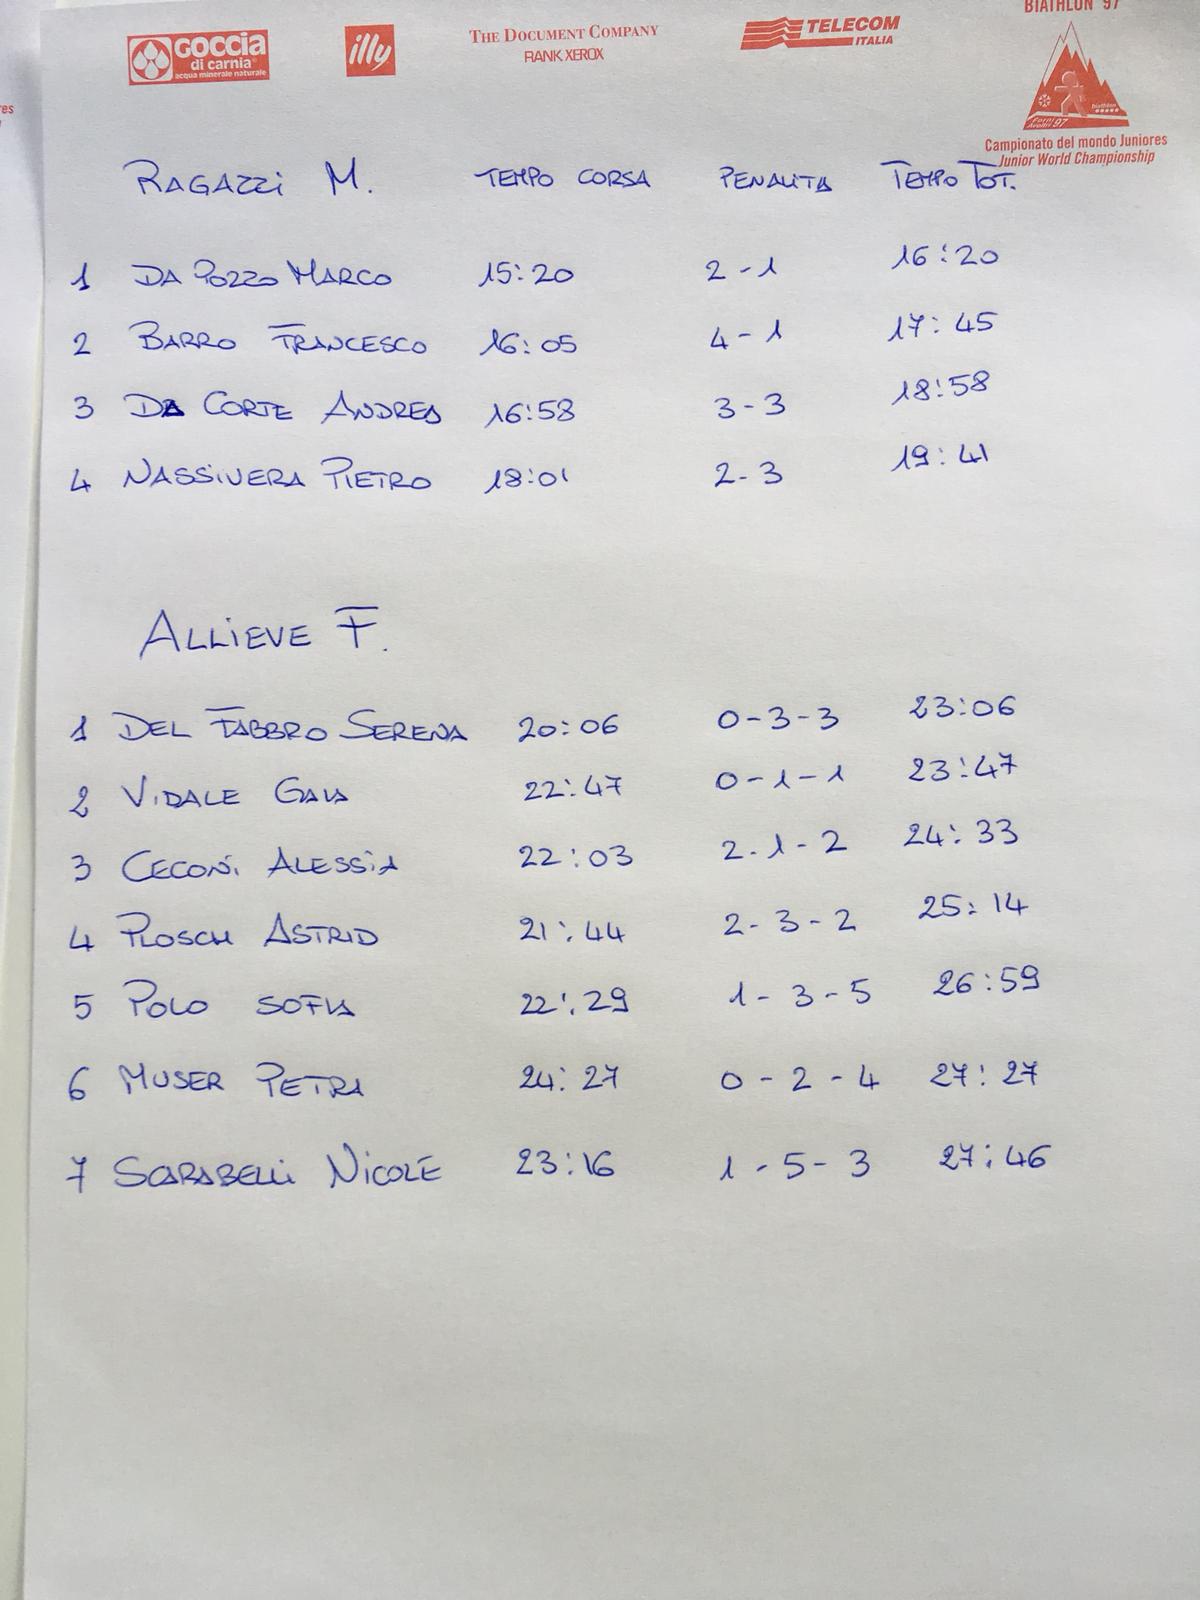 BIATHLON 97
GOCCIA
di carnia
acqua minerale naturale
illy
THE DOCUMENT COMPANY
RANK XEROX
TELECOM
ITALIA
biathlon
Forni
Avoltri 97
Campionato del mondo Juniores
Junior World Championship
RAGAZZI M. TEMPO CORSA PENALITA TEMPO TOT.
1 DA POZZO MARCO 15:20 2-1 16:20
2 BARRO FRANCESCO 16:05 4-1 17:45
3 DA CORTE ANDREA 16:58 3-3 18:58
4 NASSIVERA PIETRO 18:01 2-3 19:41
ALLIEVE F.
1 DEL FABBRO SERENA 20:06 0-3-3 23:06
2 VIDALE GAIA 22:47 0-1-1 23:47
3 CECONI ALESSIA 22:03 2-1-2 24:33
4 PLOSCH ASTRID 21:44 2-3-2 25:14
5 POLO SOFIA 22:29 1-3-5 26:59
6 MUSER PETRA 24:27 0-2-4 27:27
7 SCARABELLI NICOLE 23:16 1-5-3 27:46